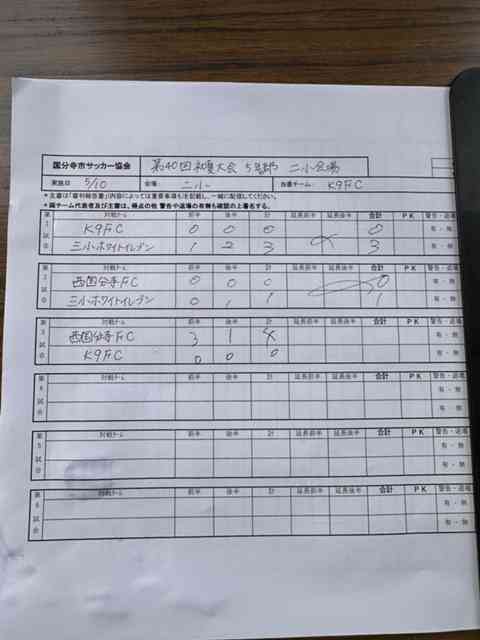 国分寺市サッカー協会 第40回 大会 5年部 二小会場
実施日 5/10 会場: 二小 当番チーム: K9FC
第1試合 対戦チーム 前半 後半 計 延長前半 延長後半 合計 PK 警告・退場
K9FC 0 0 0 0 有・無
三小ホワイトイレブン 1 2 3 3 有・無
第2試合 対戦チーム 前半 後半 計 延長前半 延長後半 合計 PK 警告・退場
西国分寺FC 0 0 0 0 有・無
三小ホワイトイレブン 0 1 1 1 有・無
第3試合 対戦チーム 前半 後半 計 延長前半 延長後半 合計 PK 警告・退場
西国分寺FC 3 1 4 有・無
K9FC 0 0 0 有・無
第4試合 対戦チーム 前半 後半 計 延長前半 延長後半 合計 PK 警告・退場
有・無
有・無
第5試合 対戦チーム 前半 後半 計 延長前半 延長後半 合計 PK 警告・退場
有・無
有・無
第6試合 対戦チーム 前半 後半 計 延長前半 延長後半 合計 PK 警告・退場
有・無
有・無